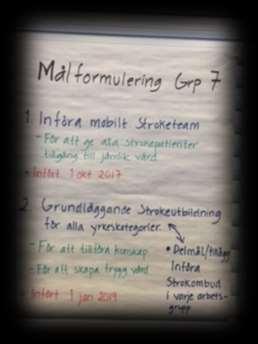 Målformulering Grp 7
1. Införa mobilt Stroketeam
- För att ge alla strokepatienter
tillgång till jämlik vård
• Infört 1 okt 2017
2. Grundläggande Strokeutbildning
för alla yrkeskategorier
- För att tillföra kunskap
- För att skapa trygg vård
• Infört 1 jan 2019
• Delmål/tillägg
Införa
Strokombud
i varje arbets-
grupp